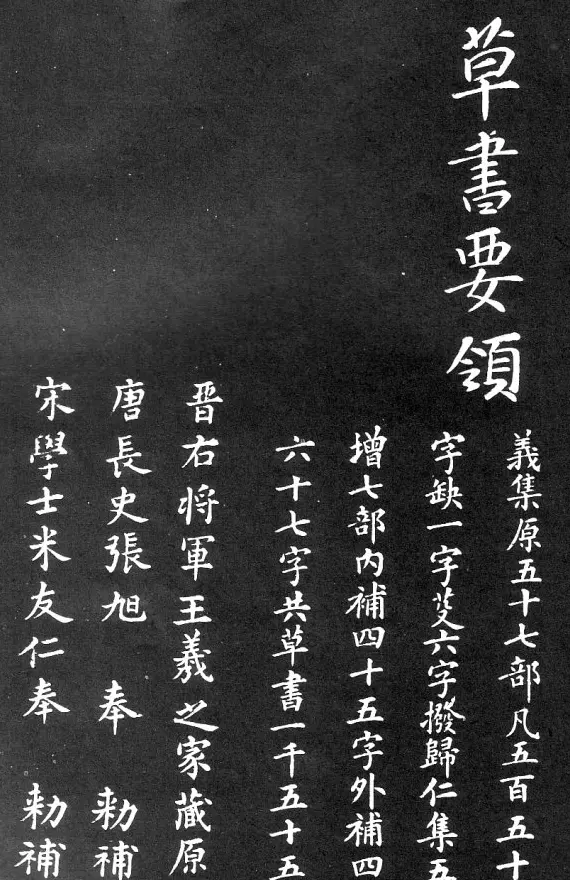 草書要領
義集原五十七部凡五百五十
字缺一字芟六字撥歸仁集五
增七部內補四十五字外補四
六十七字共草書一千五十五
晋右将軍王羲之家藏原
唐長史張旭 奉 勑補
宋學士米友仁奉 勑補